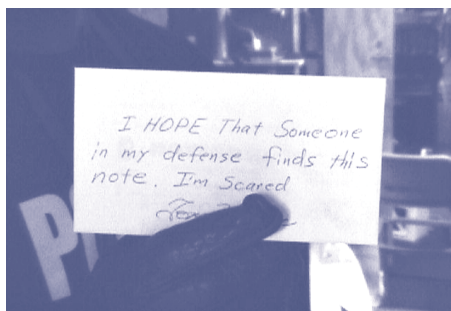 I HOPE That Someone
in my defense finds this
note. I'm Scared